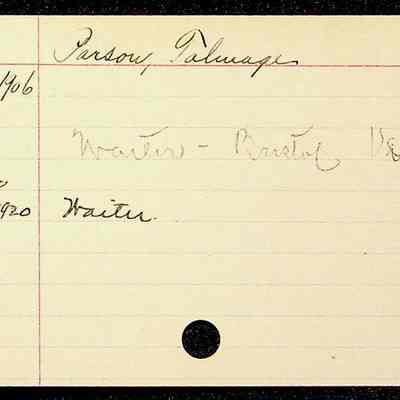 Parson, Talmage
1906
Waiter - Bristol Va
1920 Waiter.